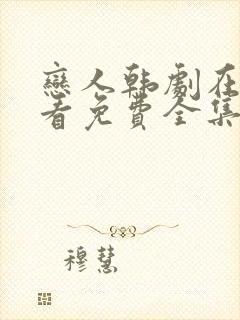 戀人韩劇在
看免費全集
穆慧